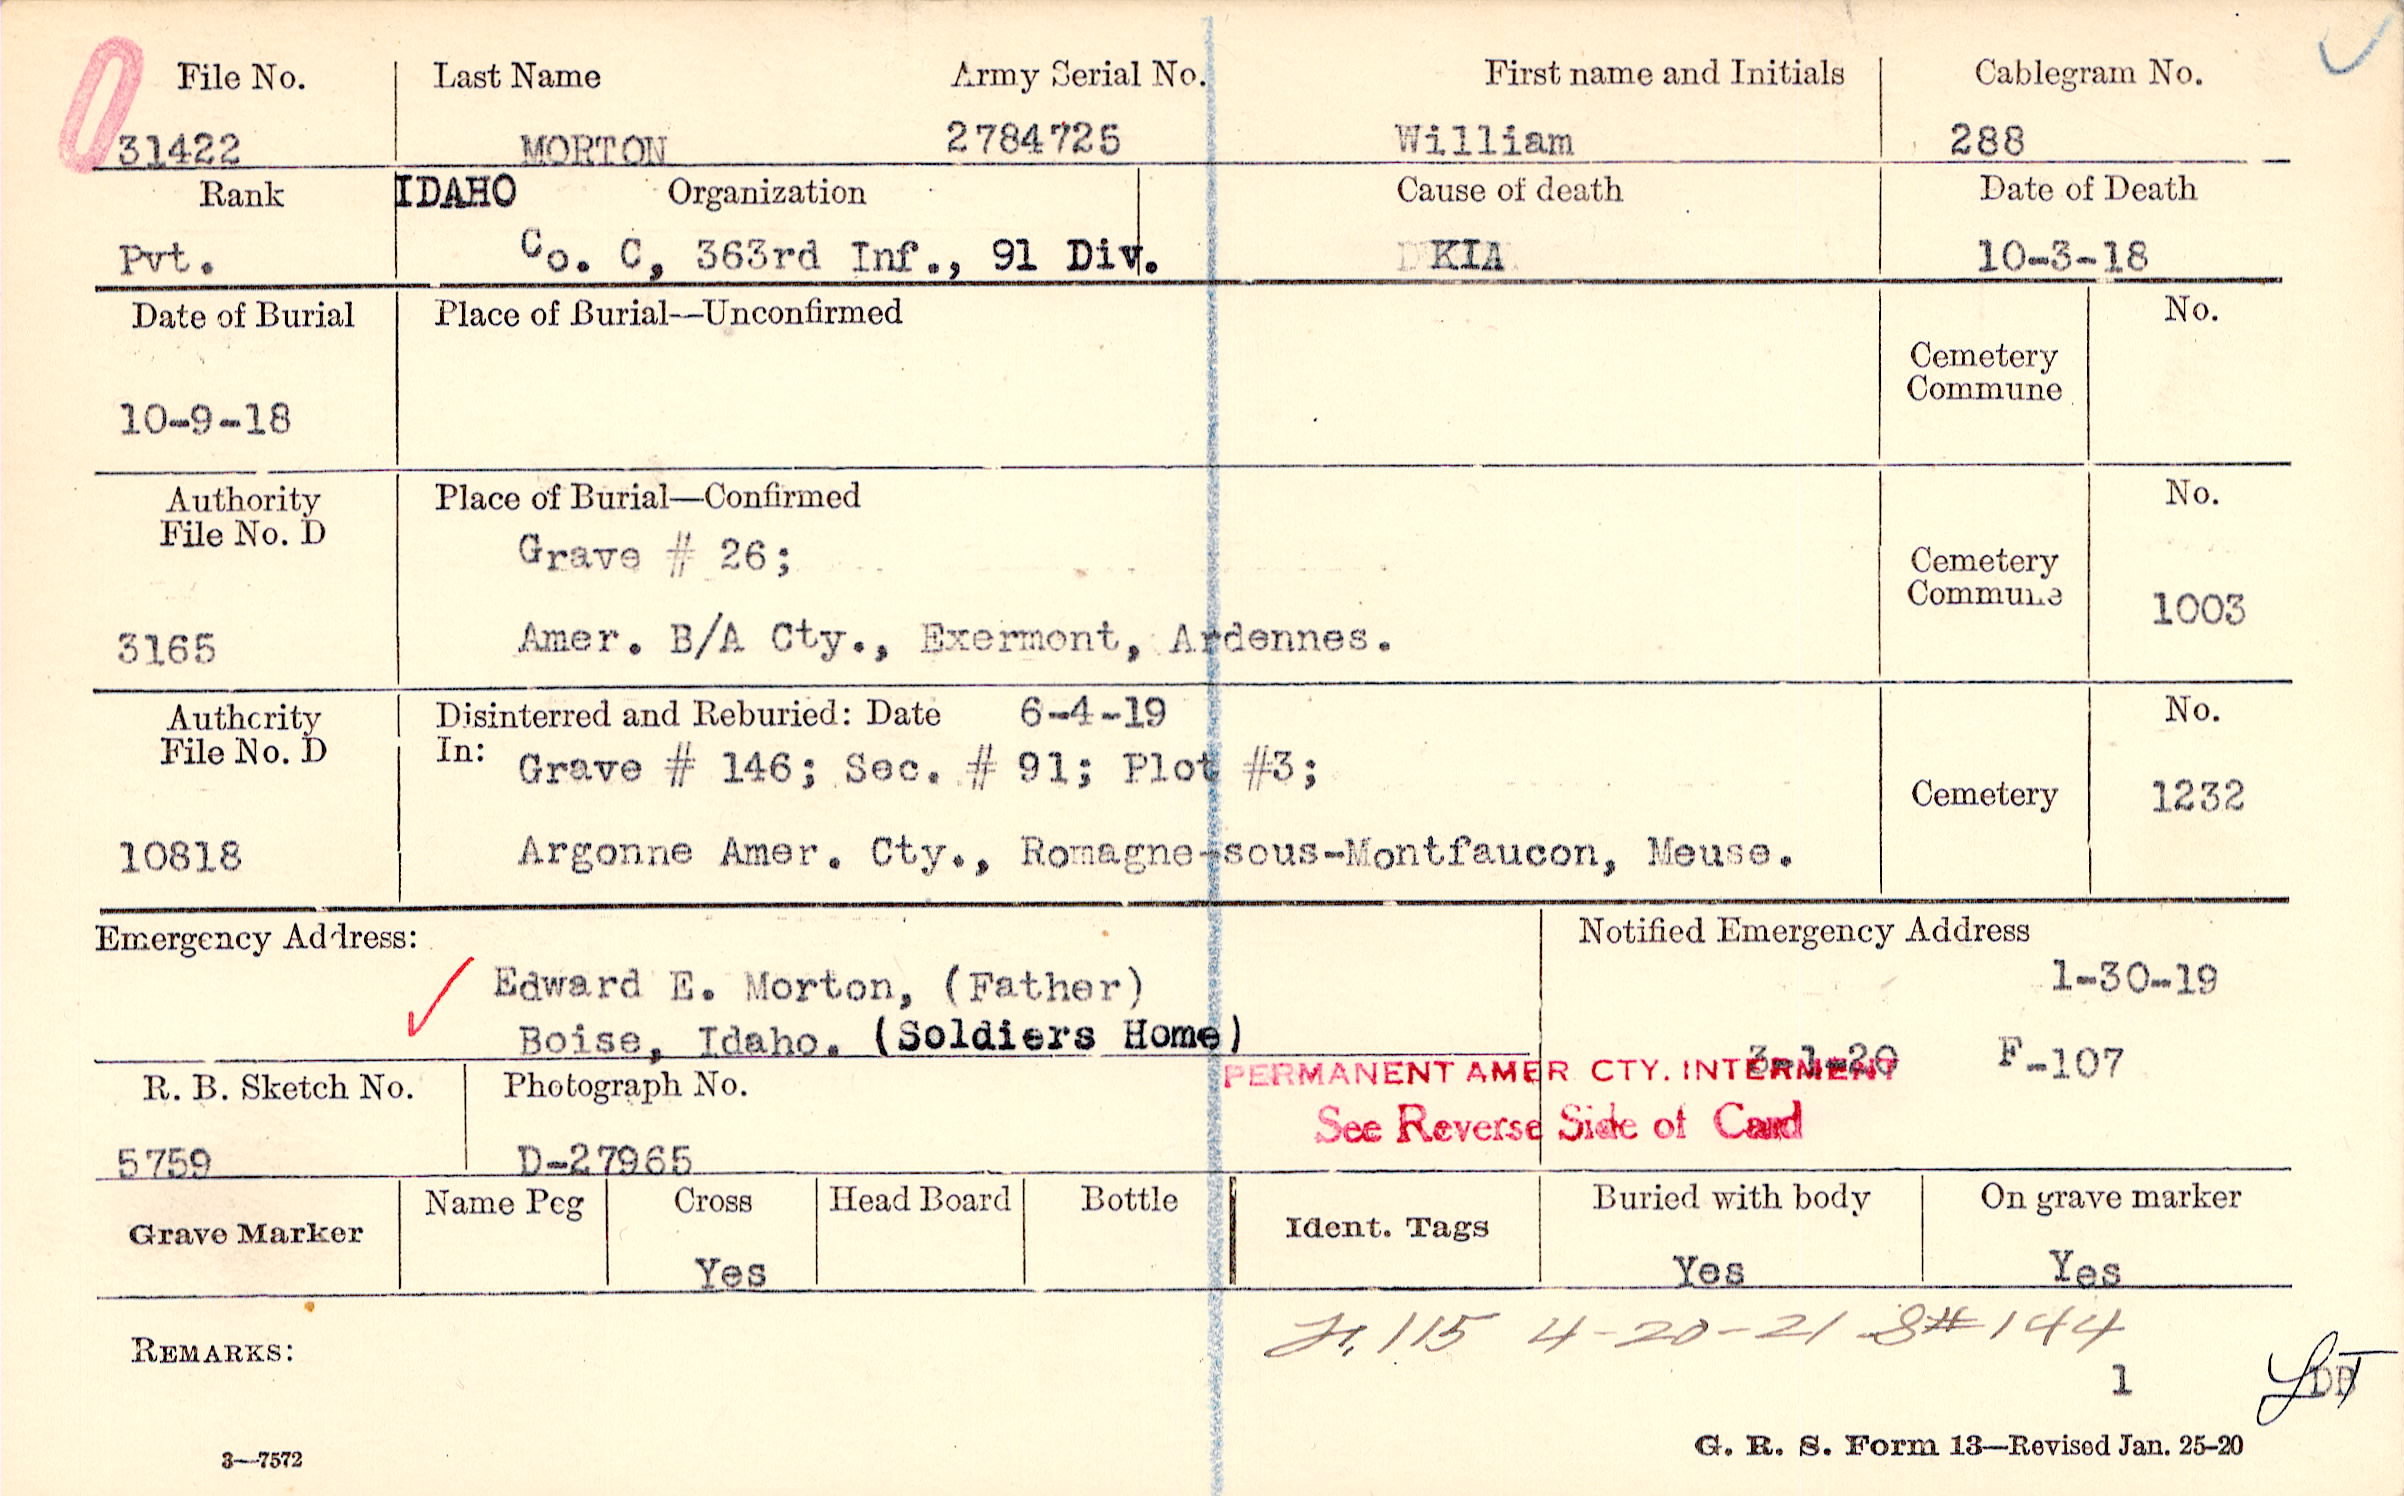 File No. Last Name Army Serial No. First name and Initials Cablegram No.
31422 MORTON 2784725 William 288
Rank IDAHO Organization Cause of death Date of Death
Pvt. Co. C, 363rd Inf., 91 Div. KIA 10-3-18
Date of Burial Place of Burial—Unconfirmed No.
Cemetery
Commune
10-9-18
Authority Place of Burial—Confirmed No.
File No. D
Grave # 26;
Cemetery
Commune 1003
3165 Amer. B/A Cty., Exermont, Ardennes.
Authority Disinterred and Reburied: Date 6-4-19 No.
File No. D In: Grave # 146; Sec. # 91; Plot #3;
Cemetery 1232
10818 Argonne Amer. Cty., Romagne-sous-Montfaucon, Meuse.
Emergency Address: Notified Emergency Address
Edward E. Morton, (Father) 1-30-19
Boise, Idaho. (Soldiers Home)
3-1-20 F-107
PERMANENT AMER CTY. INTERMENT
R. B. Sketch No. Photograph No.
See Reverse Side of Card
5759 D-27965
Grave Marker Name Peg Cross Head Board Bottle Ident. Tags Buried with body On grave marker
Yes Yes Yes
115 4-20-21 S#144
REMARKS:
1
3—7572 G. R. S. Form 13—Revised Jan. 25-20